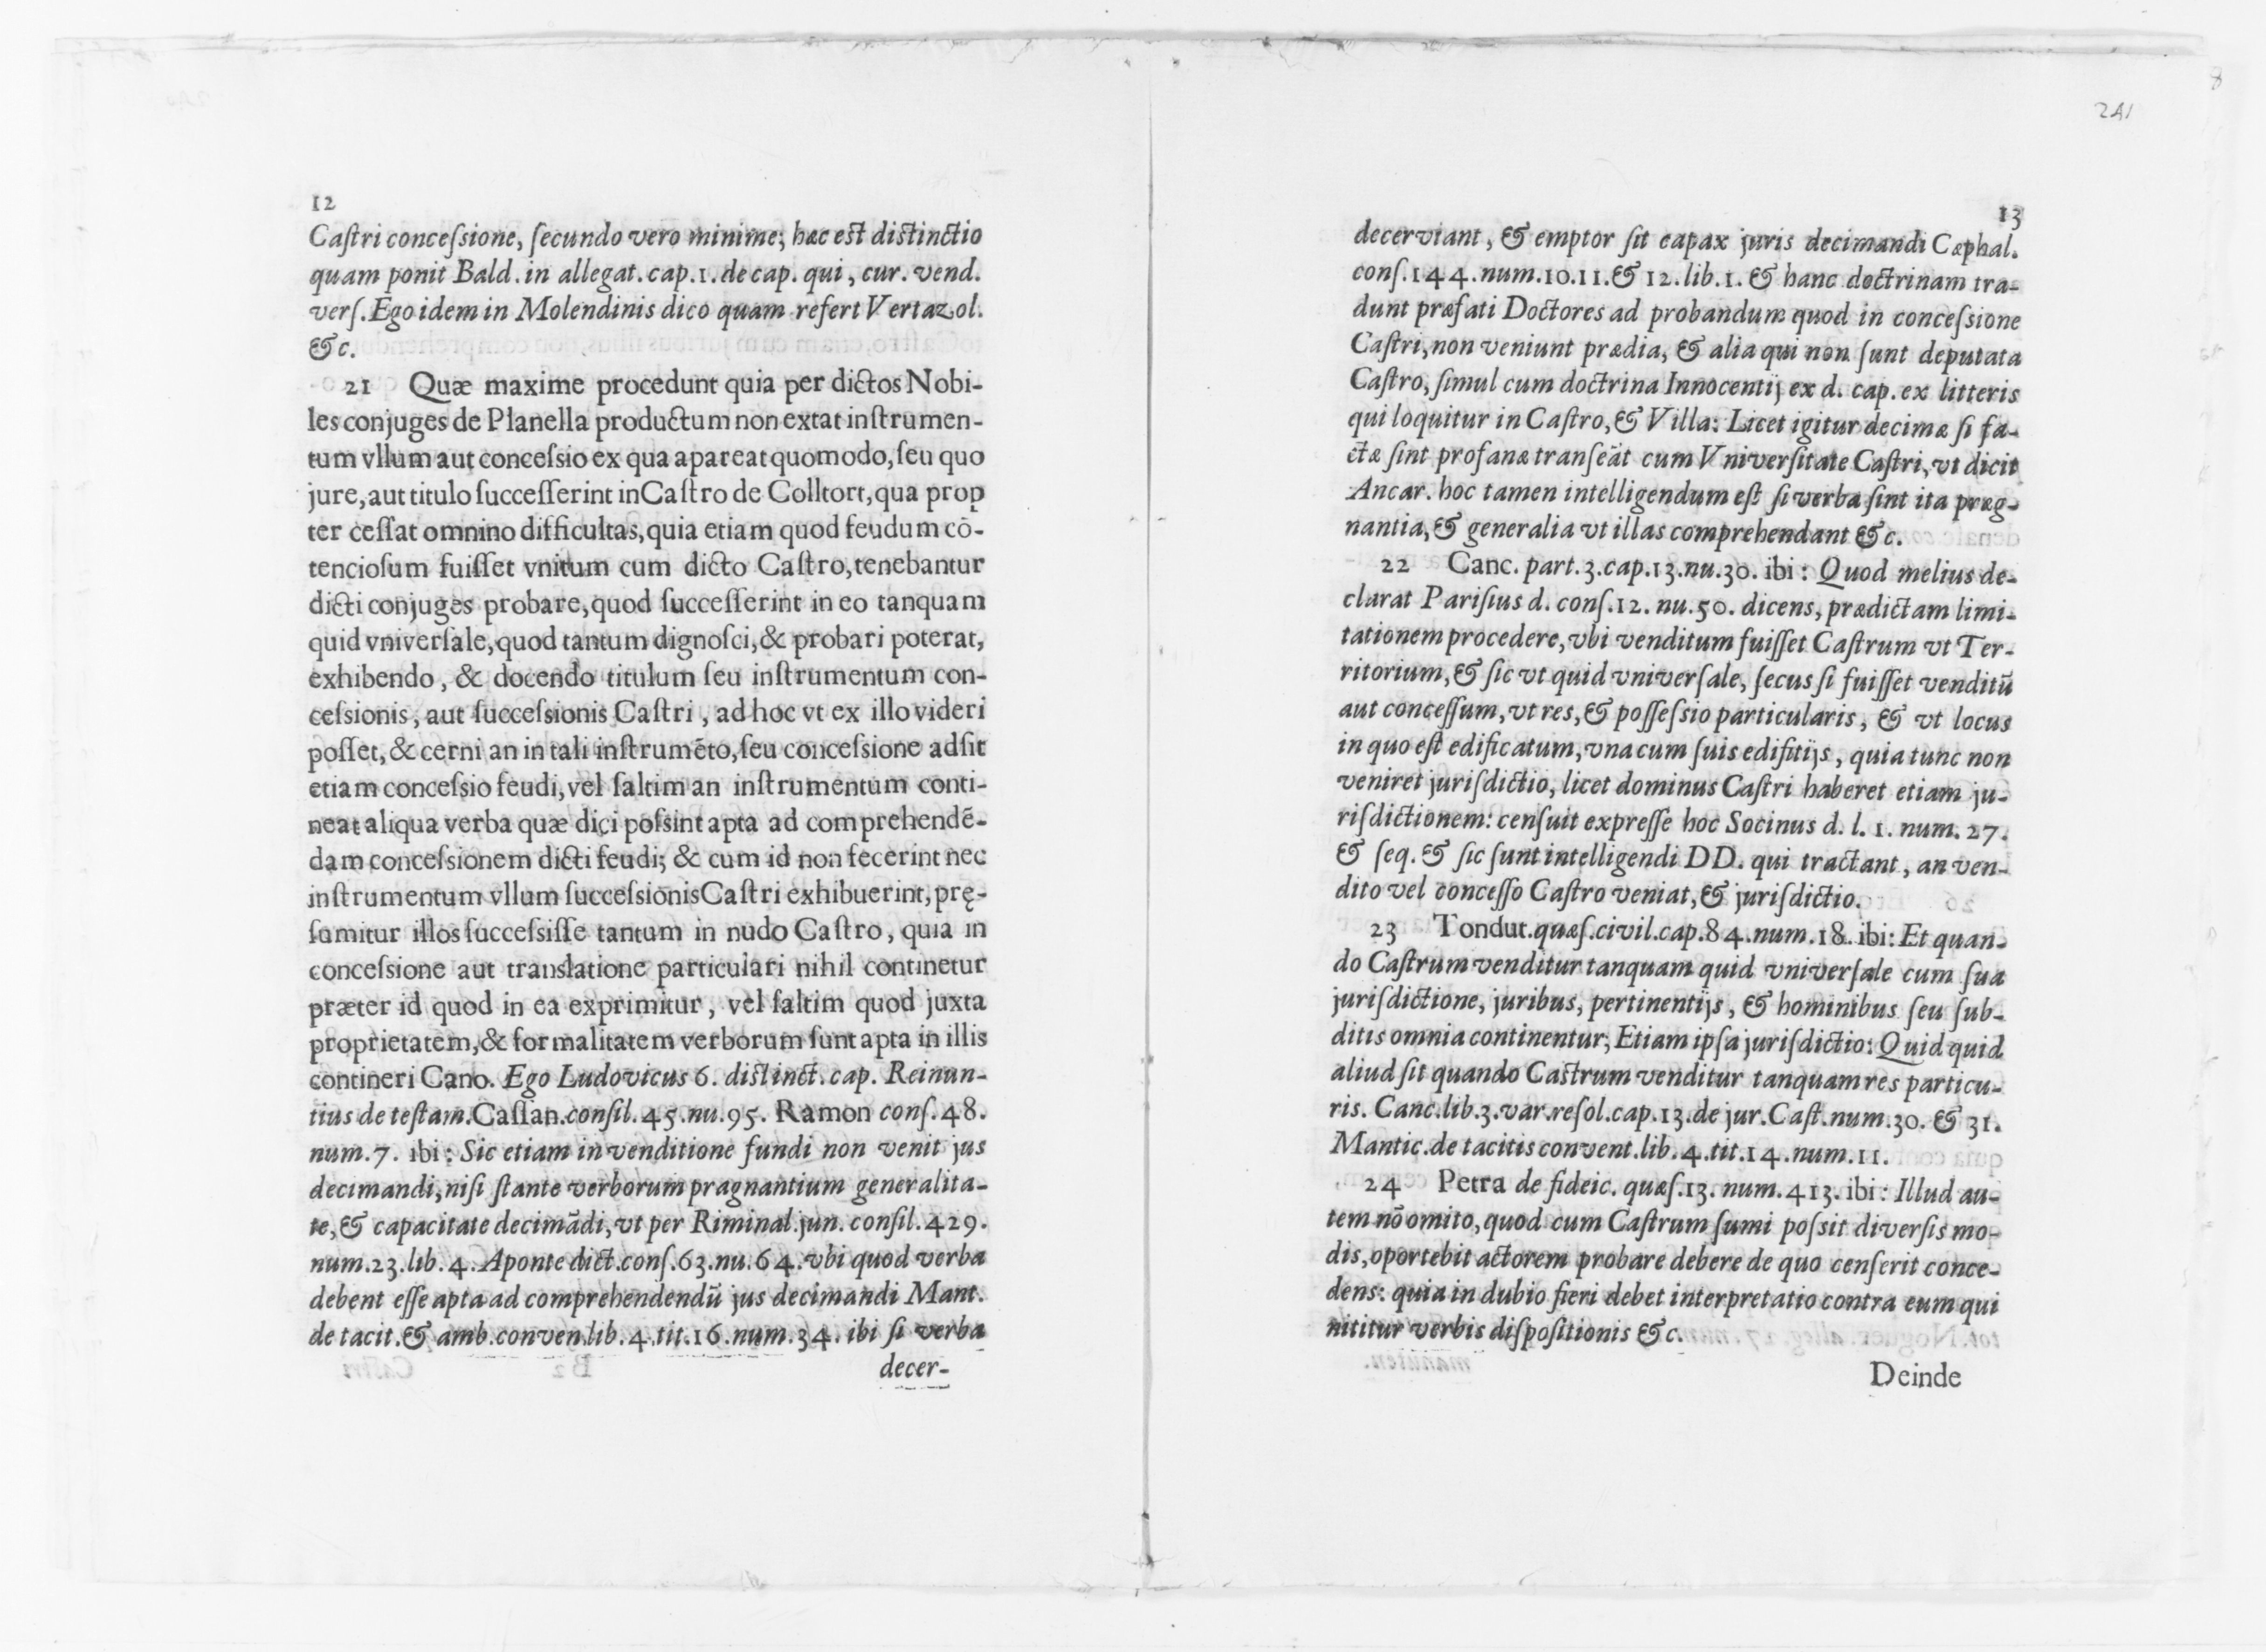 12
Caſtri conceſsione, ſecundo vero minime; hæc est distinctio
quam ponit Bald. in allegat. cap. 1. de cap. qui, cur. vend.
verſ. Ego idem in Molendinis dico quam refert Vertazol.
&c.
21 Quæ maxime procedunt quia per dictos Nobi-
les conjuges de Planella productum non extat inſtrumen-
tum vllum aut conceſsio ex qua apareat quomodo, ſeu quo
jure, aut titulo ſucceſſerint in Caſtro de Colltort, qua prop
ter ceſſat omnino difficultas, quia etiam quod feudum cō-
tencioſum fuiſſet vnitum cum dicto Caſtro, tenebantur
dicti conjuges probare, quod ſucceſſerint in eo tanquam
quid vniverſale, quod tantum dignoſci, & probari poterat,
exhibendo, & docendo titulum ſeu inſtrumentum con-
ceſsionis, aut ſucceſsionis Caſtri, ad hoc vt ex illo videri
poſſet, & cerni an in tali inſtrumēto, ſeu conceſsione adſit
etiam conceſsio feudi, vel ſaltim an inſtrumentum conti-
neat aliqua verba quæ dici poſsint apta ad comprehendē-
dam conceſsionem dicti feudi; & cum id non fecerint nec
inſtrumentum vllum ſucceſsionis Caſtri exhibuerint, prę-
ſumitur illos ſucceſsiſſe tantum in nudo Caſtro, quia in
conceſsione aut translatione particulari nihil continetur
præter id quod in ea exprimitur, vel ſaltim quod juxta
proprietatem, & formalitatem verborum ſunt apta in illis
contineri Cano. Ego Ludovicus 6. distinct. cap. Reinun-
tius de teſtam. Caſſan. conſil. 45. nu. 95. Ramon conſ. 48.
num. 7. ibi: Sic etiam in venditione fundi non venit jus
decimandi, niſi ſtante verborum pragnantium generalita-
te, & capacitate decimādi, vt per Riminal. jun. conſil. 429.
num. 23. lib. 4. Aponte dict. conſ. 63. nu. 64. vbi quod verba
debent eſſe apta ad comprehendendū jus decimandi Mant.
de tacit. & amb. conven. lib. 4. tit. 16. num. 34. ibi ſi verba
decer-
241
13
decerviant, & emptor ſit capax juris decimandi Cæphal.
conſ. 144. num. 10. 11. & 12. lib. 1. & hanc doctrinam tra-
dunt præfati Doctores ad probandum quod in conceſsione
Caſtri, non veniunt prædia, & alia qui non ſunt deputata
Caſtro, ſimul cum doctrina Innocentij ex d. cap. ex litteris
qui loquitur in Caſtro, & Villa: Licet igitur decimæ ſi fa-
ctæ ſint profanæ tranſeāt cum Vniverſitate Caſtri, vt dicit
Ancar. hoc tamen intelligendum eſt ſi verba ſint ita præg-
nantia, & generalia vt illas comprehendant &c.
22 Canc. part. 3. cap. 13. nu. 30. ibi: Quod melius de-
clarat Pariſius d. conſ. 12. nu. 50. dicens, prædictam limi-
tationem procedere, vbi venditum fuiſſet Caſtrum vt Ter-
ritorium, & ſic vt quid vniverſale, ſecus ſi fuiſſet venditū
aut conceſſum, vt res, & poſſeſsio particularis, & vt locus
in quo eſt edificatum, vna cum ſuis edifitijs, quia tunc non
veniret juriſdictio, licet dominus Caſtri haberet etiam ju-
riſdictionem: cenſuit expreſſe hoc Socinus d. l. 1. num. 27.
& ſeq. & ſic ſunt intelligendi DD. qui tractant, an ven-
dito vel conceſſo Caſtro veniat, & juriſdictio.
23 Tondut. quæſ. civil. cap. 84. num. 18. ibi: Et quan-
do Caſtrum venditur tanquam quid vniverſale cum ſua
juriſdictione, juribus, pertinentijs, & hominibus ſeu ſub-
ditis omnia continentur; Etiam ipſa juriſdictio: Quid quid
aliud ſit quando Castrum venditur tanquam res particu-
ris. Canc. lib. 3. var. reſol. cap. 13. de jur. Caſt. num. 30. & 31.
Mantic. de tacitis convent. lib. 4. tit. 14. num. 11.
24 Petra de fideic. quæſ. 13. num. 413. ibi: Illud au-
tem nō omito, quod cum Caſtrum ſumi poſsit diverſis mo-
dis, oportebit actorem probare debere de quo cenſerit conce-
dens: quia in dubio fieri debet interpretatio contra eum qui
nititur verbis diſpoſitionis &c.
Deinde